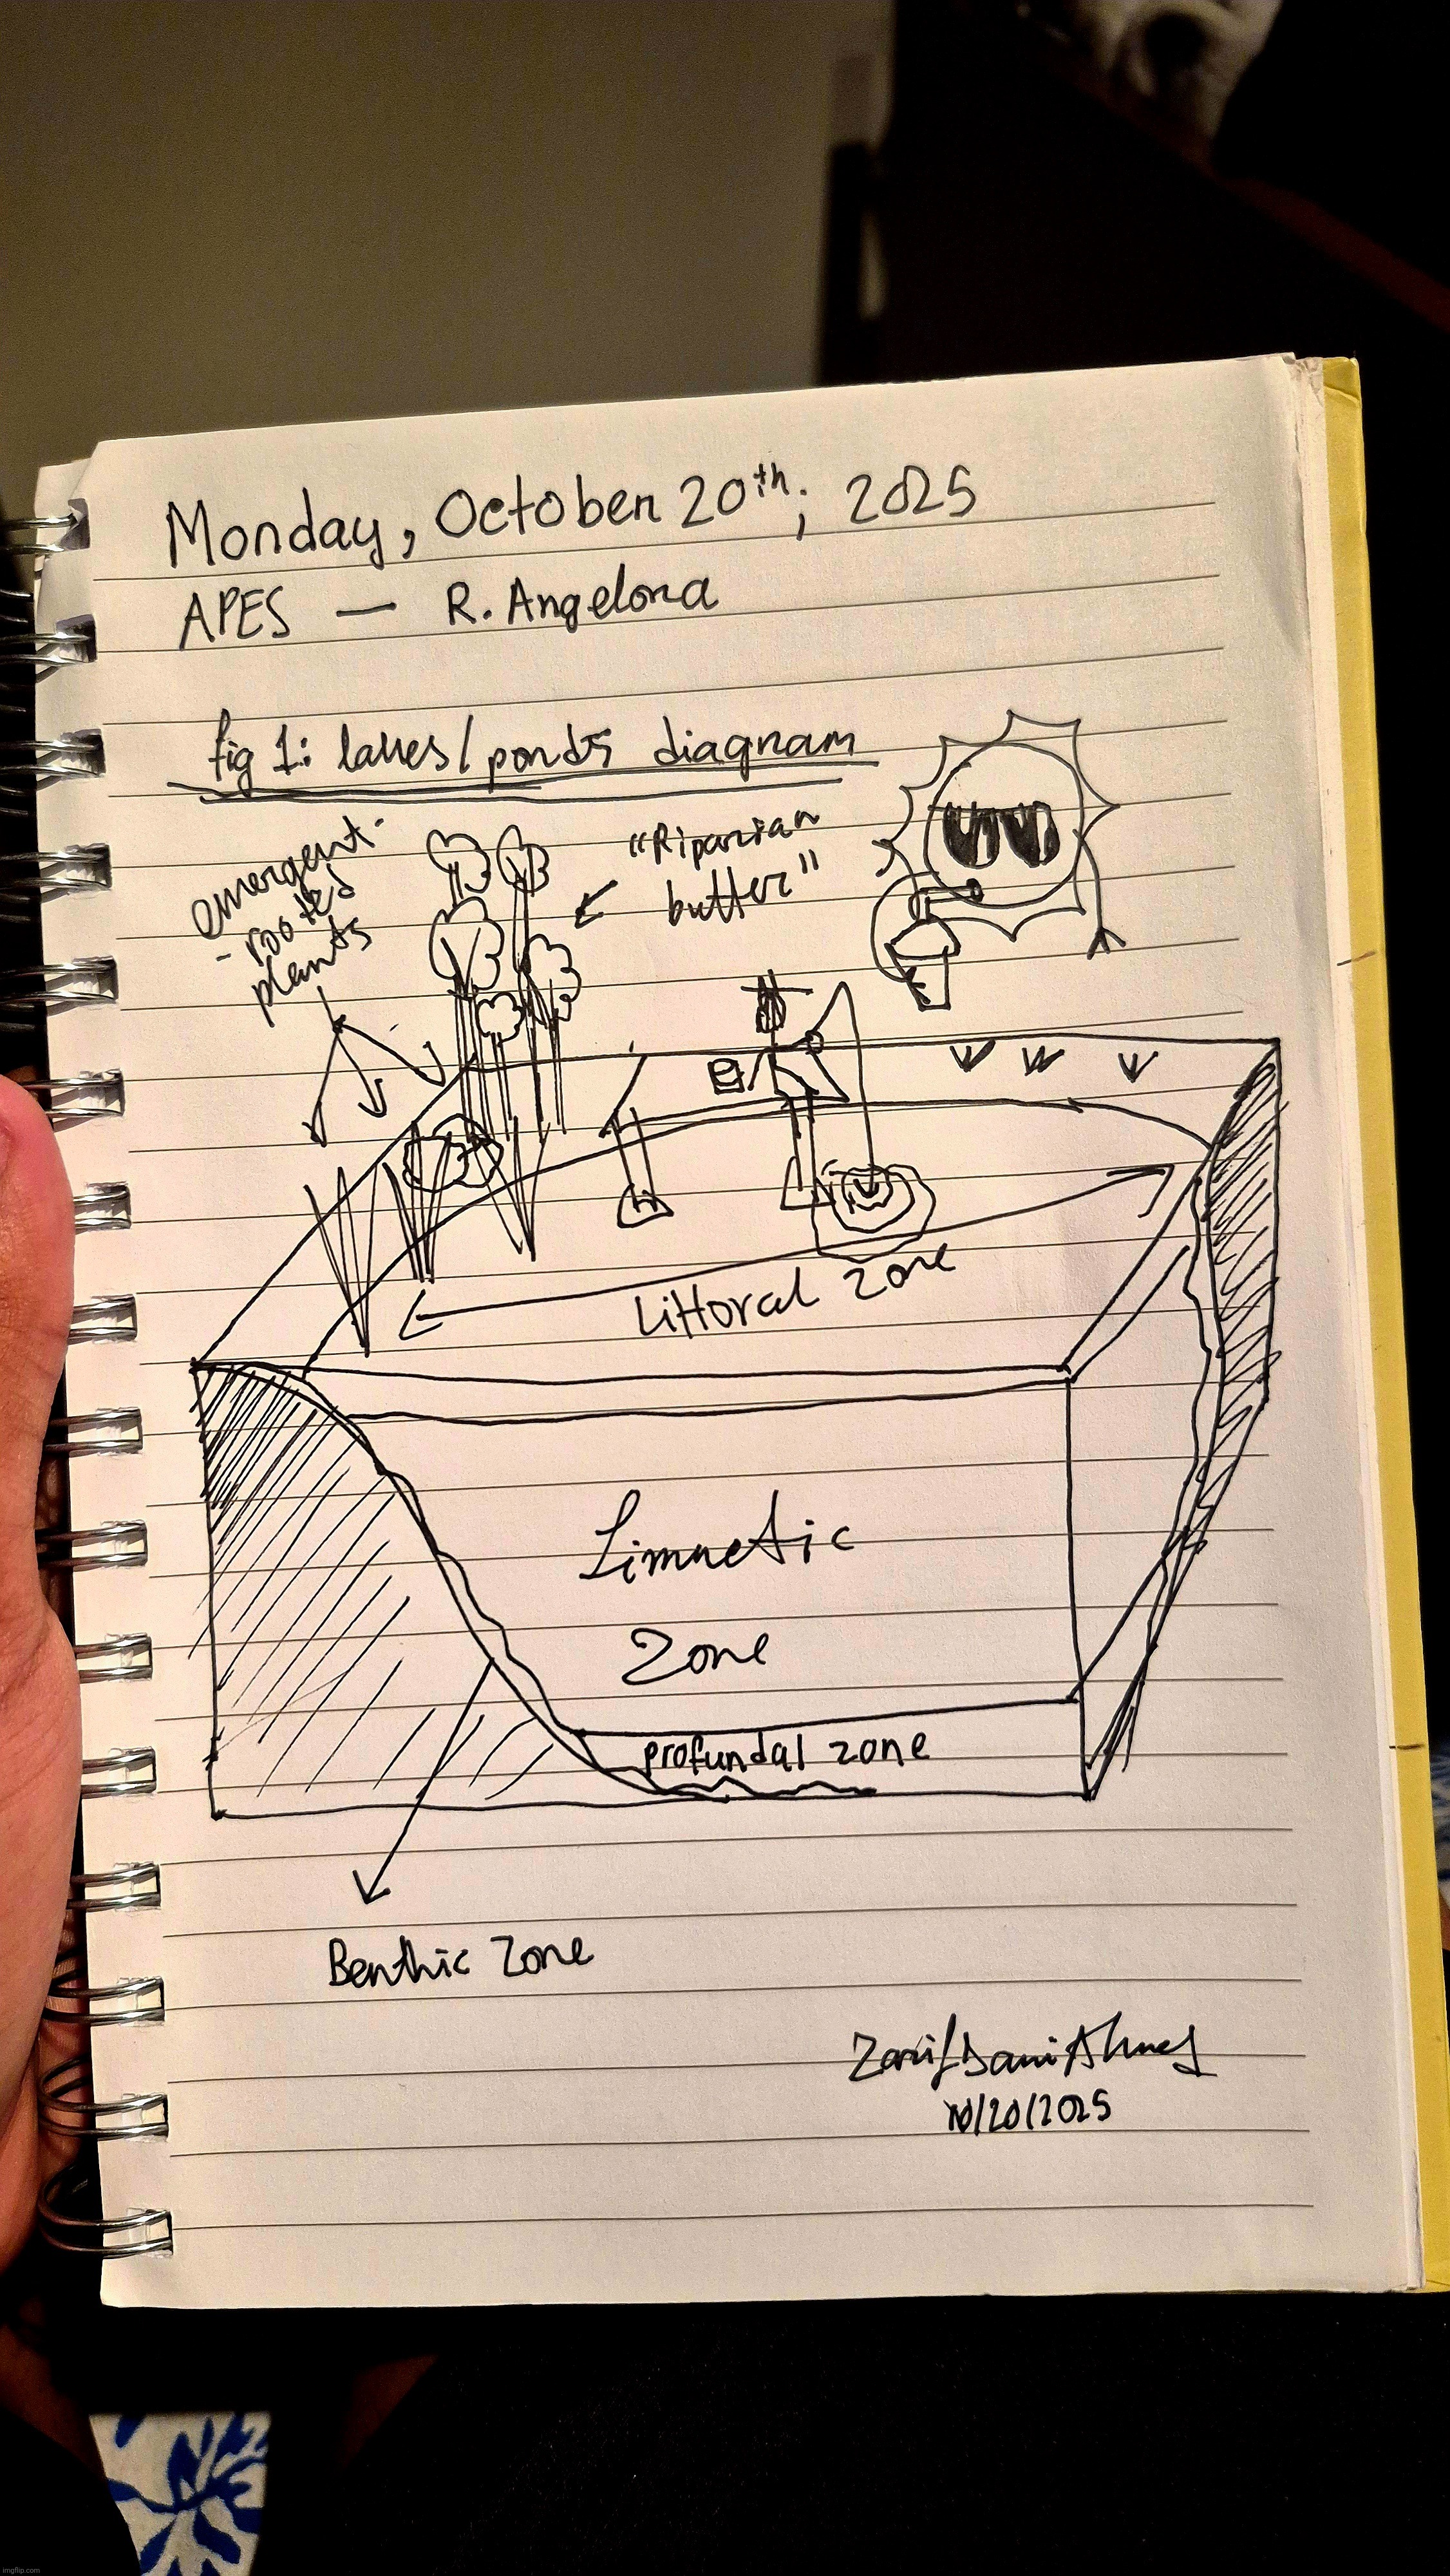 Monday, October 20th; 2025
APES — R. Angelona
fig 1: lakes/ponds diagram
emergent-
- rooted
plants
"Riparian
butter"
Littoral zone
Limnetic
Zone
profundal zone
Benthic Zone
10/20/2025
imgflip.com